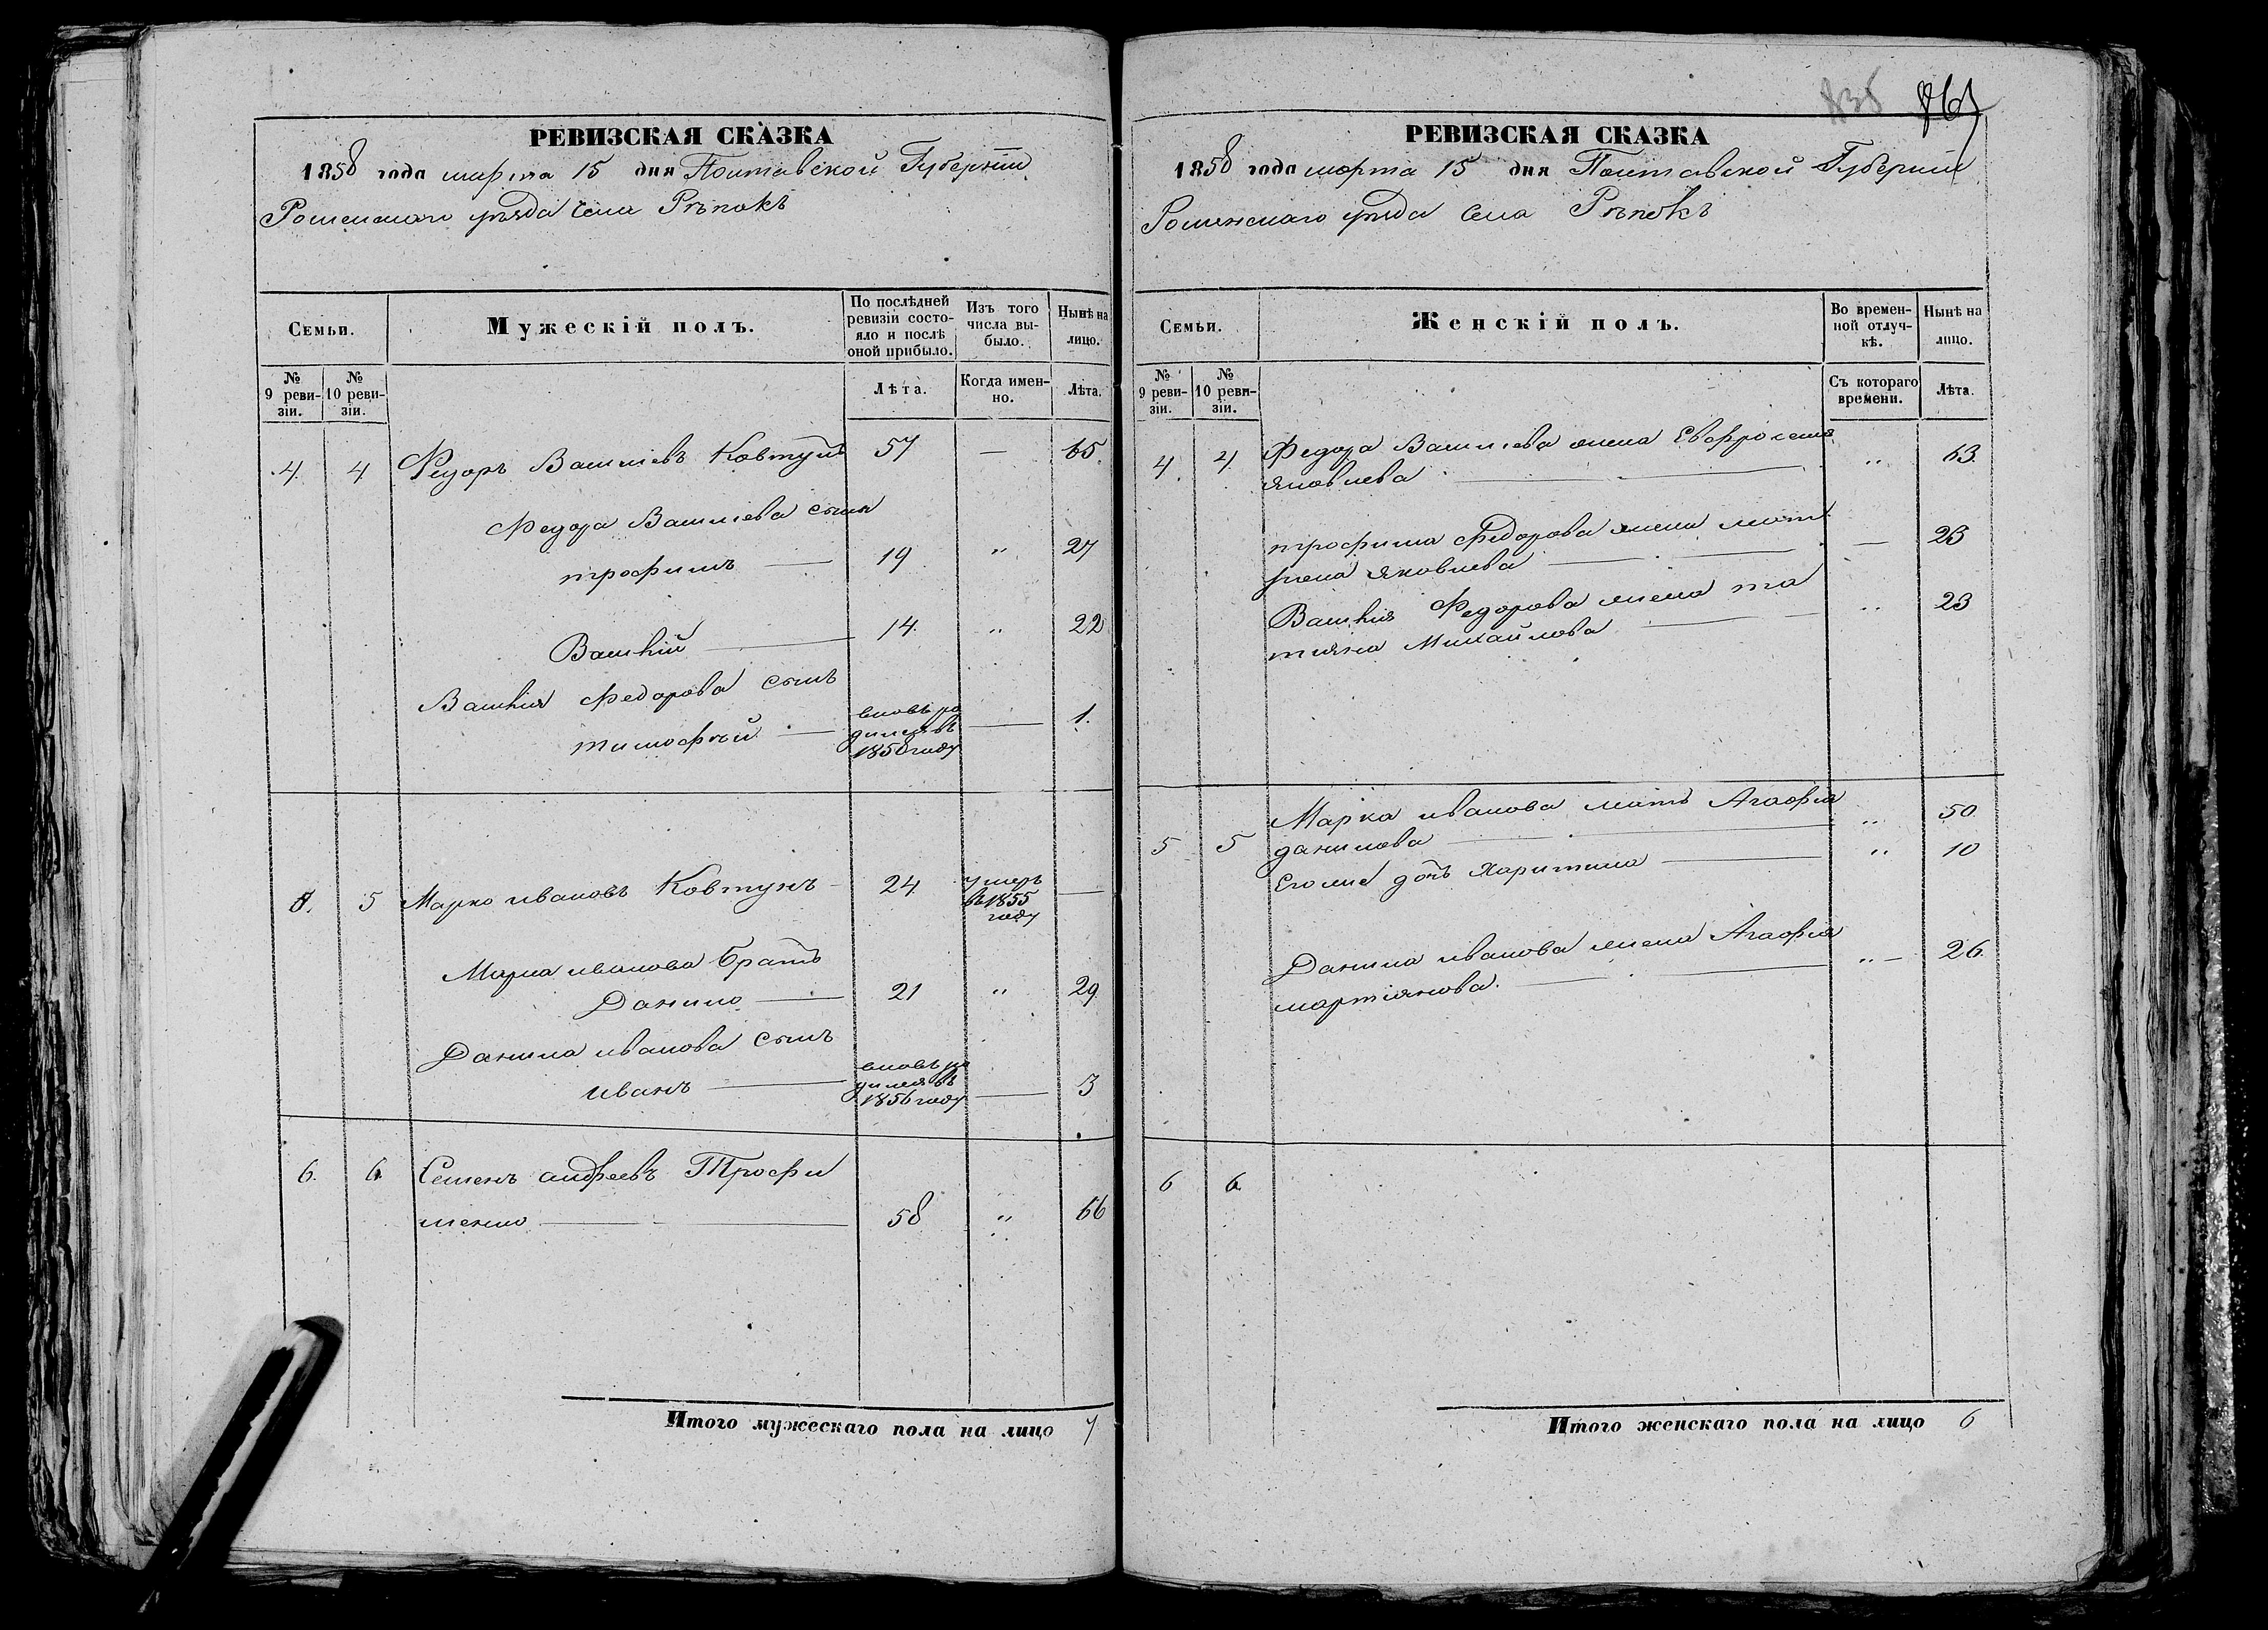 РЕВИЗСКАЯ СКАЗКА
1858 года марта 15 дня Полтавской Губерніи
Роменскаго уѣзда села Рѣпокъ
Семьи.
Мужескій полъ.
По послѣдней ревизіи состояло и послѣ оной прибыло.
Изъ того числа выбыло.
Нынѣ на лицо.
№ 9 ревизіи.
№ 10 ревизіи.
Лѣта.
Когда именно.
Лѣта.
4. 4 Федоръ Васильевъ Ковтунъ 57 — 65.
Федора Васильева сынъ
трофимъ — 19 " 27
Василій — 14. " 22
Василія Федорова сынъ
тимофѣй — вновь родился въ 1856 году — 1.
5. 5 Марко ивановъ Ковтунъ 24 умеръ въ 1855 году —
Марка иванова братъ
Данило — 21 " 29
Данила иванова сынъ
иванъ — вновь родился въ 1856 году — 3
6. 6. Семенъ андреевъ Трофи
менко — 58 " 66
Итого мужескаго пола на лицо 7
835 865
РЕВИЗСКАЯ СКАЗКА
1858 года марта 15 дня Полтавской Губерніи
Роменскаго уѣзда села Рѣпокъ
Семьи.
Женскій полъ.
Во временной отлучкѣ.
Нынѣ на лицо.
№ 9 ревизіи.
№ 10 ревизіи.
Съ котораго времени.
Лѣта.
4. 4. Федора Васильева жена Евфросенія
яковлева — " 63.
трофима Федорова жена мот
рена яковлева — — 23
Василія Федорова жена та
тияна Михайлова — " 23
5 5 Марка иванова мать Агафія
данилова — " 50.
Его же дочь Харитина — " 10
Данила иванова жена Агафія
мартіянова. — " — 26.
6 6.
Итого женскаго пола на лицо 6